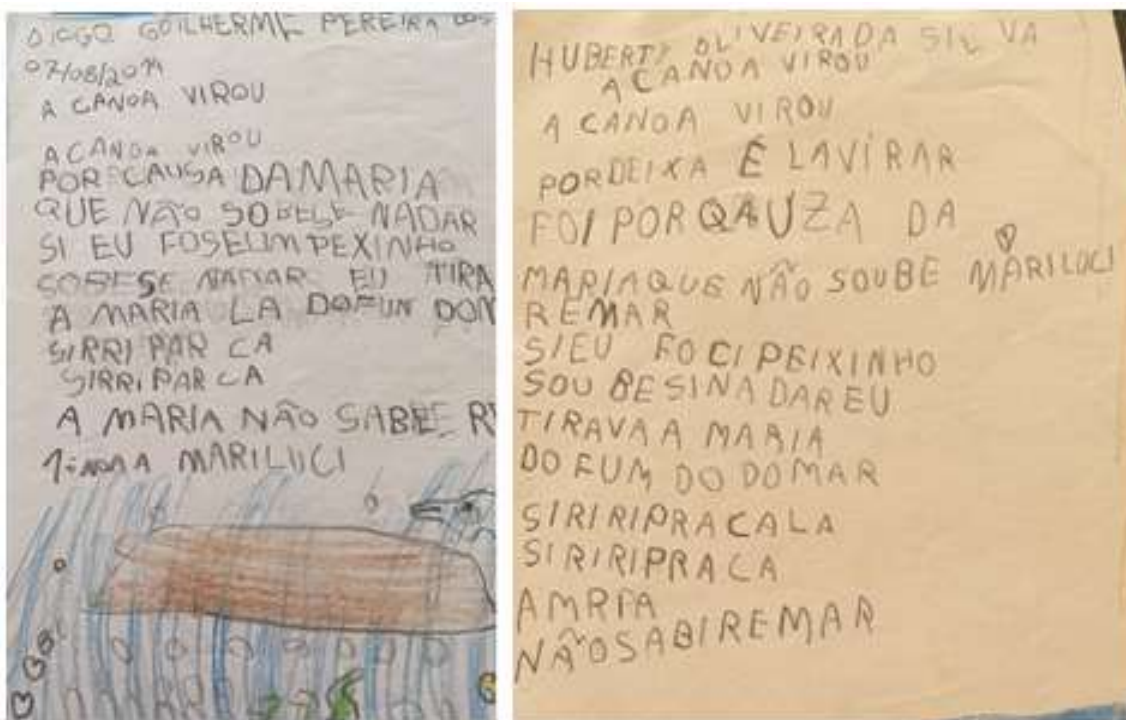 DIOGO GUILHERME PEREIRA DOS
07/08/2019
A CANOA VIROU
A CANOA VIROU
POR CAUSA DAMARIA
QUE NÃO SOBESE NADAR
SI EU FOSEUM PEXINHO
SOBESE NADAR EU TIRA
A MARIA LA DOFUN DOM
SIRRI PAR CA
SIRRI PAR CA
A MARIA NÃO SABE R
MARILUCI
HUBERTY OLIVEIRA DA SILVA
A CANOA VIROU
A CANOA VIROU
PORDEIXA É LAVIRAR
FOI PORQAUZA DA
MARIAQUE NÃO SOUBE MARILUCI
REMAR
SIEU FOCIPEIXINHO
SOU BESINADAREU
TIRAVAA MARIA
DOFUM DO DOMAR
SIRIRIPRACALA
SIRIRIPRACA
AMRIA
NÃOSABIREMAR